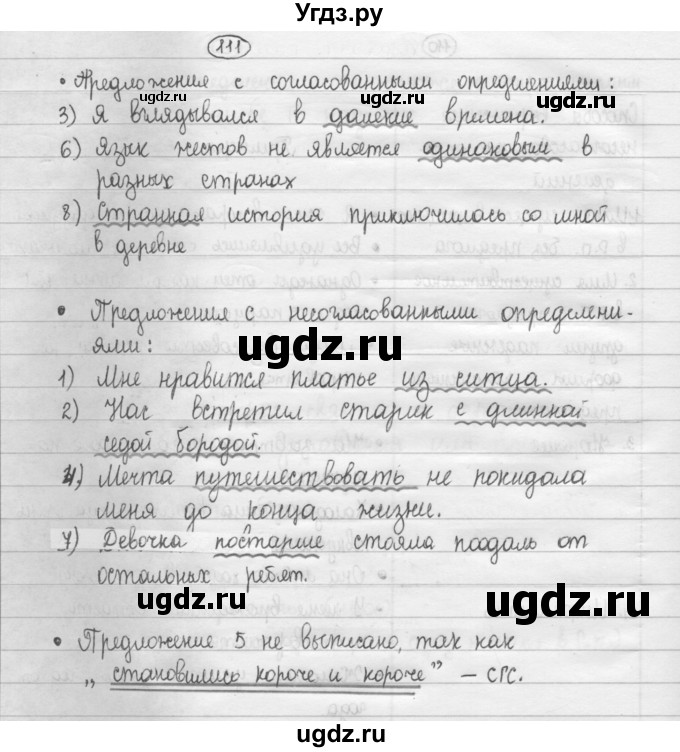 Угдз.ру
111
• Предложения с согласованными определениями:
ugdz.ru ugdz.ru
3) Я вглядывался в далекие времена.
6) Язык жестов не является одинаковым в
разных странах
ugdz.ru
8) Странная история приключилась со мной
в деревне
ugdz.ru
• Предложения с несогласованными определени-
ugdz.ru
ями:
1) Мне нравится платье из ситца.
2) Нас встретил старик с длинной
седой бородой.
ugdz.ru
4) Мечта путешествовать не покидала
меня до конца жизни.
ugdz.ru
7) Девочка постарше стояла поодаль от
остальных ребят.
ugdz.ru ugdz.ru
• Предложение 5 не выписано, так как
ugdz.ru
„становились короче и короче” – СГС.
ugdz.ru